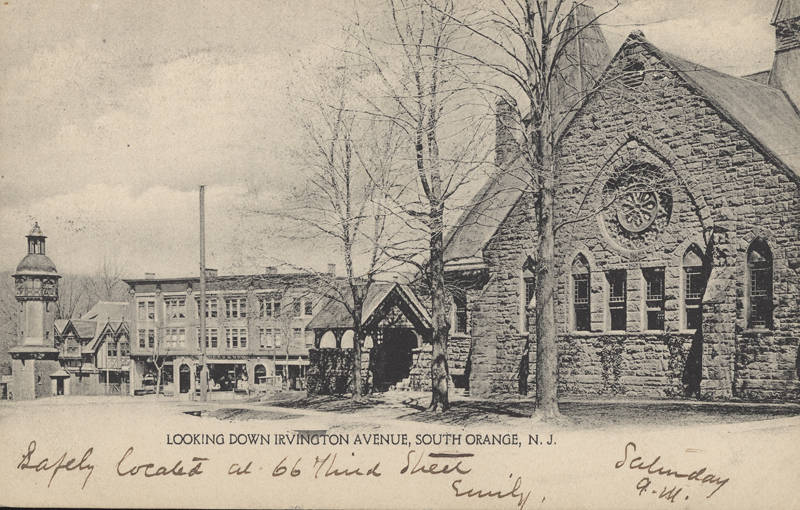 LOOKING DOWN IRVINGTON AVENUE, SOUTH ORANGE, N. J.
Safely located at 66 Third Street
Emily,
Saturday
P.M.